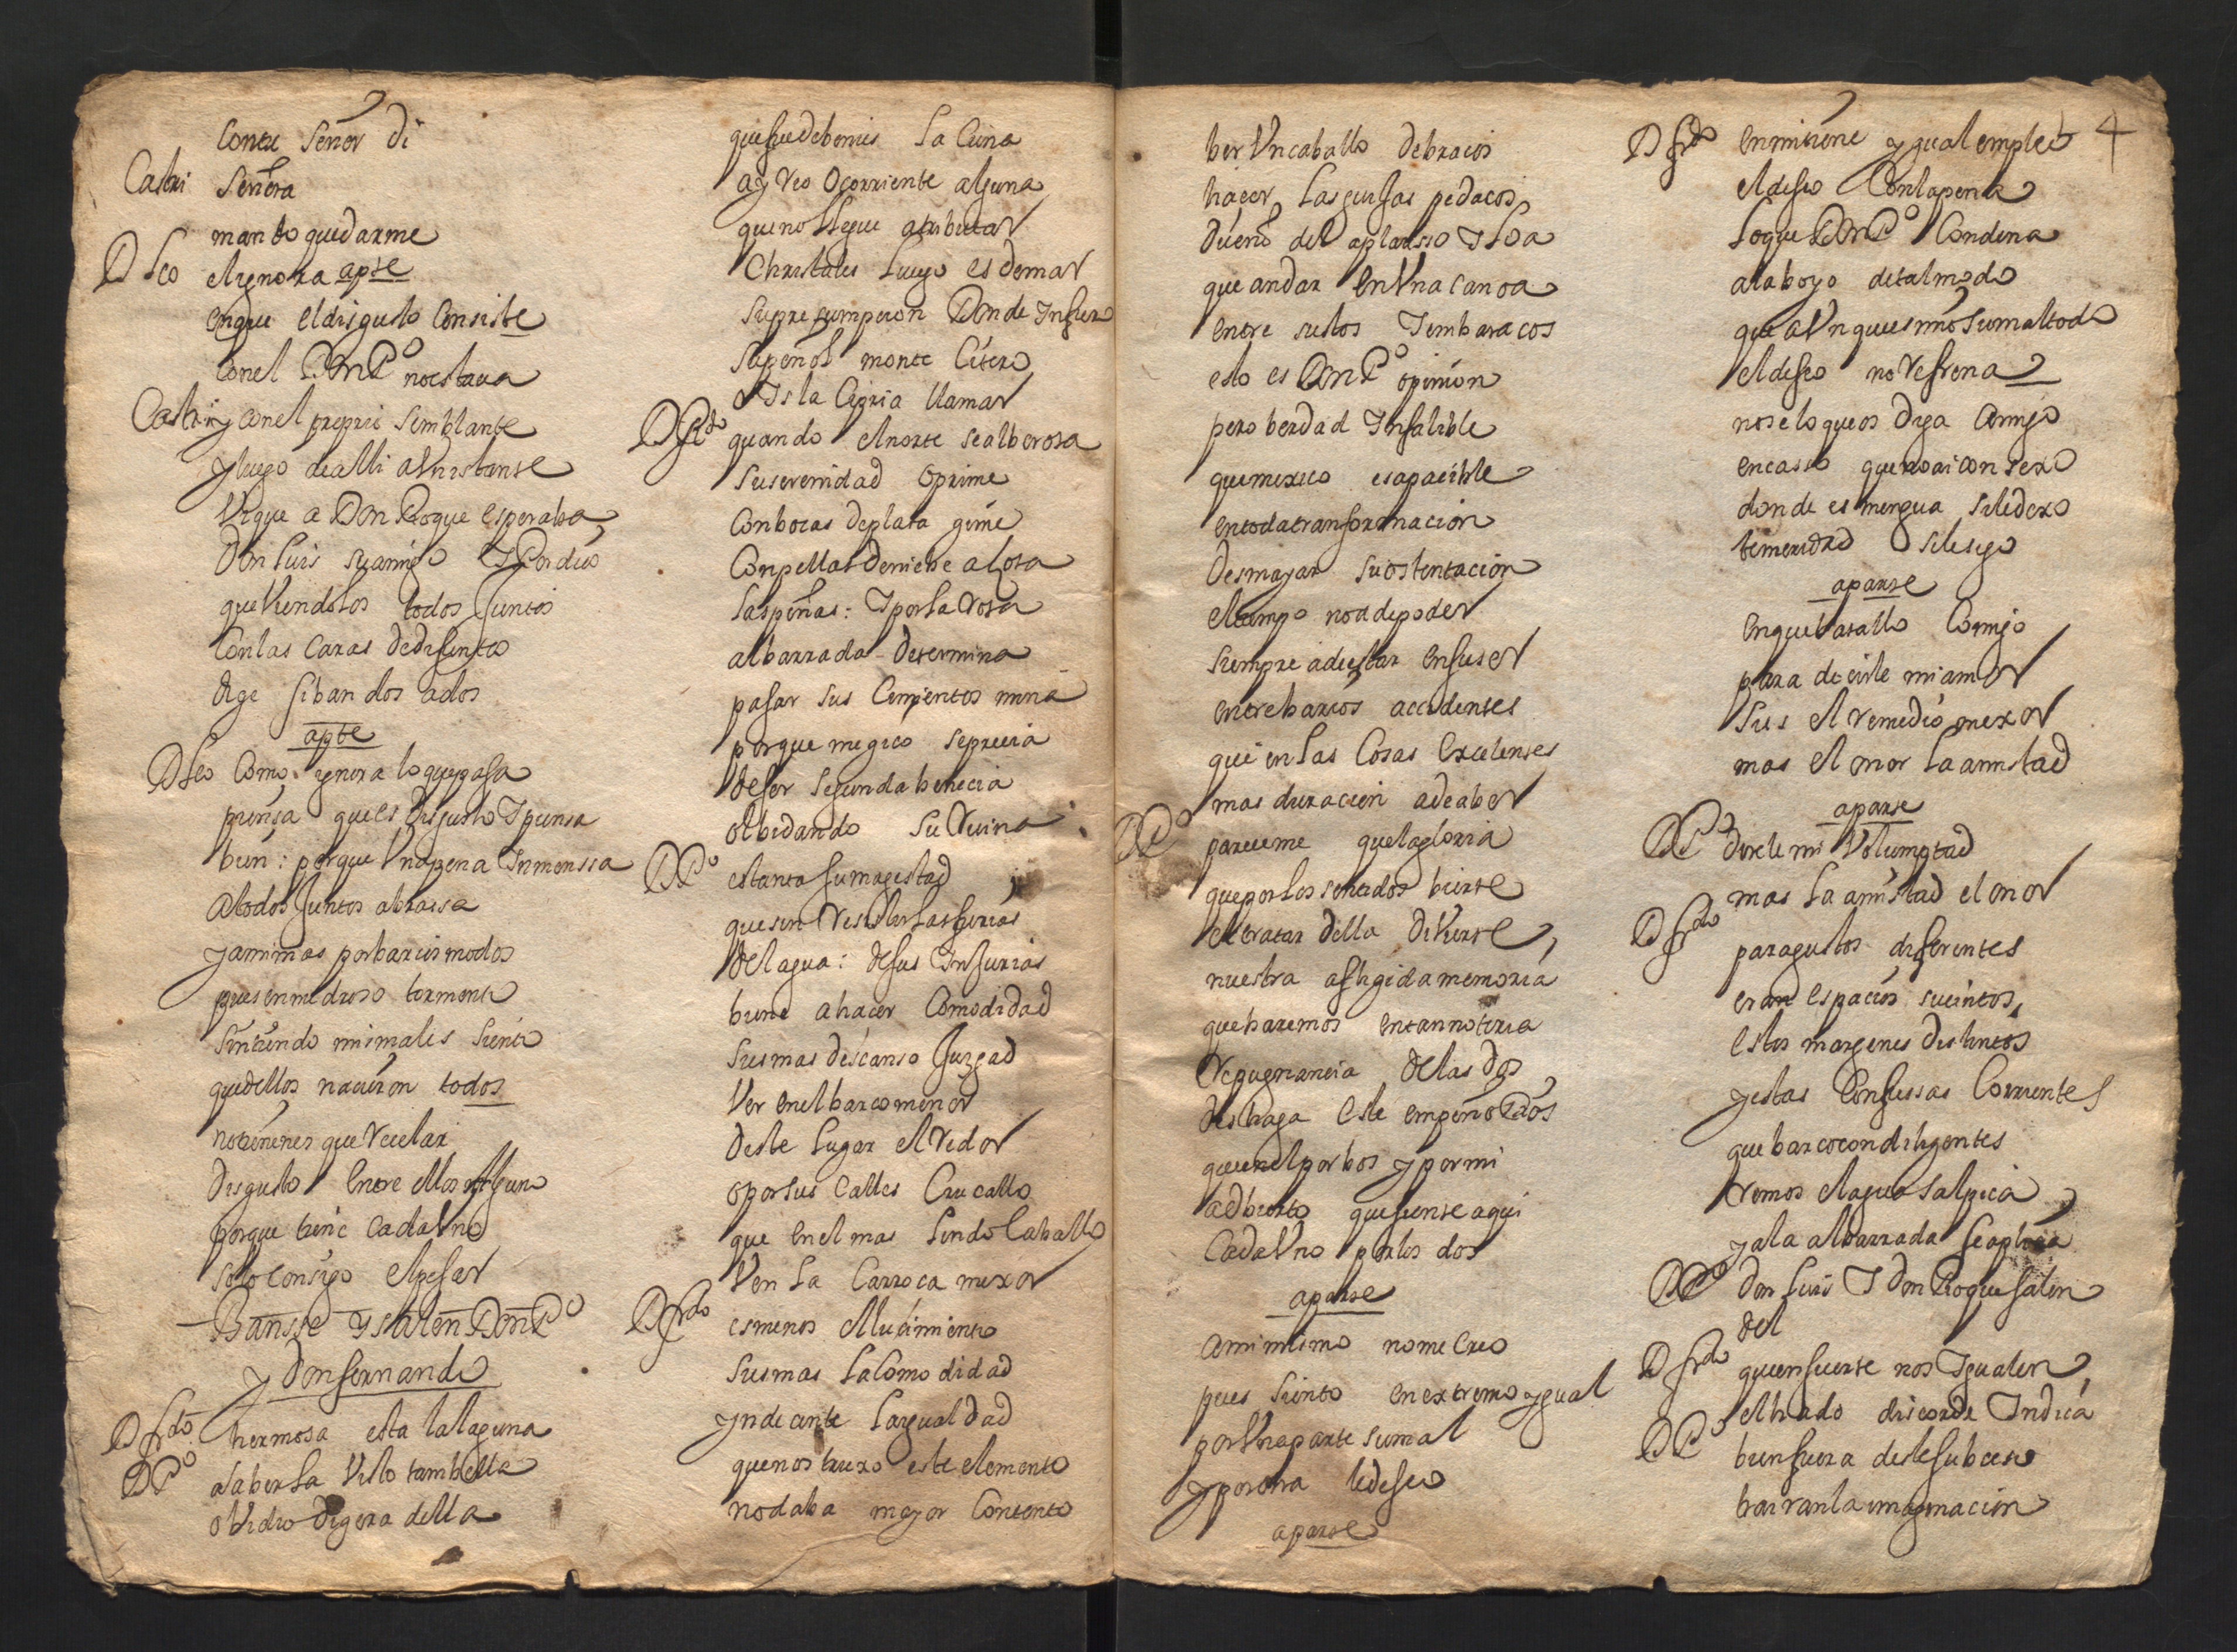 Conttu Señor di
Castri Señora
manto quedarme
D Leo el ygnora apte
en que el disgusto Consiste
Conel Don P.º no estava
Castri y conel propri Semblante
y luego de alli a Vn instante
Vi que a Don Roque esperaba
Don Luis su amigo Y Perdio
que Viendolos todos Juntos
Con las caras de difunto
dige si ban dos a dos
apte
D Leo Como ygnora lo que pasa
piensa que es disgusto Y piensa
bien: porque Vna pena Inmenssa
A todos Juntos abrassa
y a mi mas por barios modos
pues en medroso tormento
Sintiendo mis males Siento
que dellos nacieron todos
no tienenes que Recelar
disgusto Entre ellos Alguno
porque tiene Cada Vno
solo Consigo el pesar
Banse y salen Don P.º
y Don fernando
D frdo hermosa esta la laguna
D P.º a aberla Visto tambella
obidio digera della
que fue de benus La Cuna
ay Reo O Corriente alguna
que no LLegue a tributar
Christales Luego es de mar
Su pressumpcion Donde Infiero
Su peñol monte Citero
o Isla Cipria llamar
D frdo quando el norte se alborota
Su serenidad Oprime
Con bocas de plata gime
Con pellas de niebe a Çota
Las peñas: Y por La Rota
albarrada determina
pasar sus Cimientos mina
porque megico se precia
de ser Segunda benecia
olbidando Su Ruina
D P.º es tanta su magestad
que sin Resistir las furias
del agua: de sus Injurias
biene a hacer Comodidad
Si es mas descanso Juzgad
Ver en el barco menor
deste Lugar el Redor
o por sus Calles Cruçallo
que en el mas Lindo Caballo
V en La Carroça mexor
D frdo es menos el lucimiento
Si es mas La Comodidad
y nde cente La ygualdad
que nos truxo este elemento
no daba mayor Contento
ber Vn caballo de braços
haçer Las guijas pedaços
dueño del aplausso Y Loa
que andar en Vna canoa
entre sustos Y embaraços
esto es Don P.º opinion
pero berdad Infalible
que mexico es apacible
en toda transformacion
desmayar su ostentacion
el tiempo no a de poder
siempre a de estar en su ser
entre barios accidentes
que en las Cosas Excelentes
mas duracion a de aber
D P.º pareceme que la gloria
que por Los sentidos bierte
el tratar della dibierte
nuestra afligida memoria
que haremos en tan notoria
Repugnancia de las dos
deshaga este empeño Dios
que en el por bos y por mi
adbierto que siente aqui
Cada Vno por los dos
aparte
a mi mismo no me Creo
pues siento en extremo ygual
por Vna parte su mal
y por otra le deseo
aparte
D frdo en mi tiene ygual empleo 4
el deseo Con la pena
Lo que Don P.º Condena
alaboyo de tal modo
que aVnque es mio su mal todo
el deseo no Refrena
no se lo que os diga Amigo
en casso que no ai consexo
donde es mengua si le dexo
temeridad si le sigo
aparte
en que batallo Comigo
para decirle mi amor
Si es el Remedio mexor
mas el onor La amistad
aparte
D P.º direle mi Volumptad
mas La amistad el onor
D frdo para gustos diferentes
eran espacios sucintos
estos margenes distintos
y estas Confussas Corrientes
que barco con diligentes
Remos el agua salpica
y a la albarrada se aplica
D P.º don Luis Y don Roque salen
del
D frdo que en suerte nos Ygualen
el hado discorde Indica
D P.º bien fuera deste subceso
barrar la imaginacion